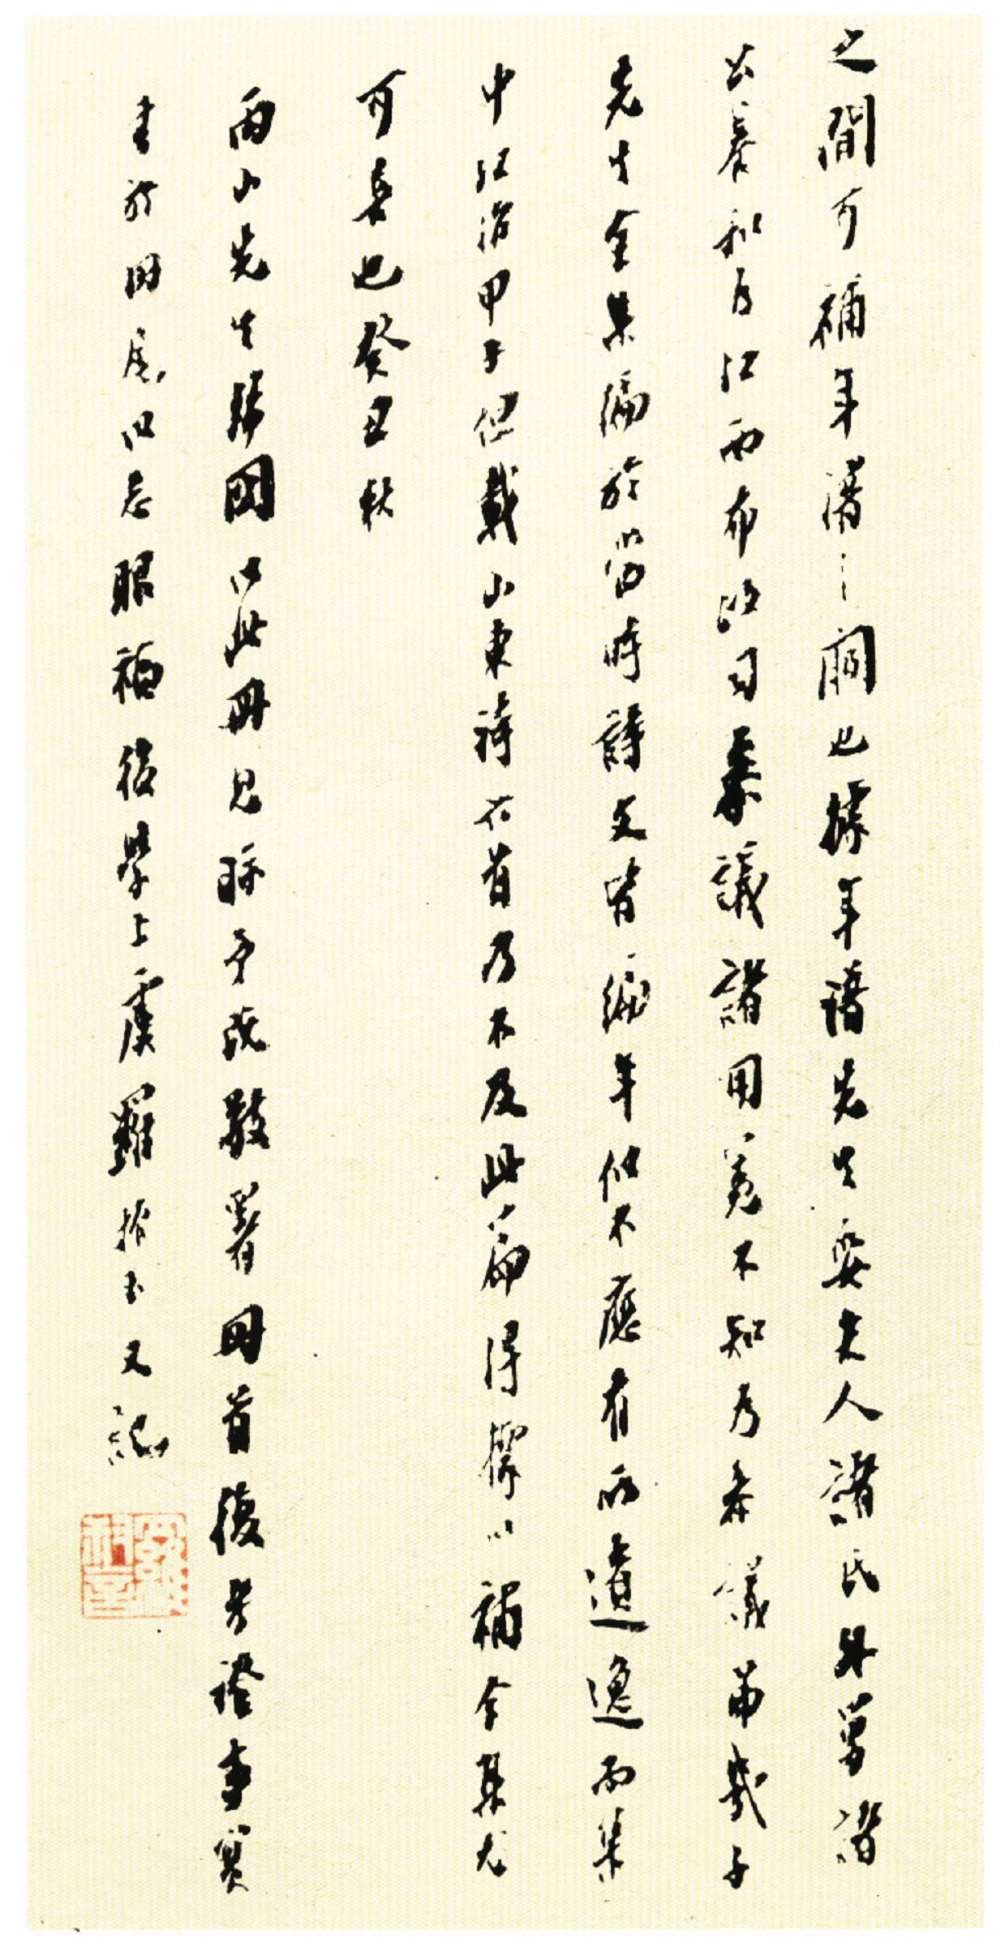 之間可補年譜之闕也據年譜先生娶夫人諸氏外舅諸
公養和官江西布政司參議諸用冕不知乃參議苐幾子
先生全集編於當時詩文皆編年似不應有所遺逸而集
中弘治甲子但載山東詩六首乃不及此篇得攈以補全集尤
可喜也癸丑秋
西山先生歸國以此冊見眎予既敬署冊首復考證事實
書於冊尾以志眼福後學上虞羅振玉又記